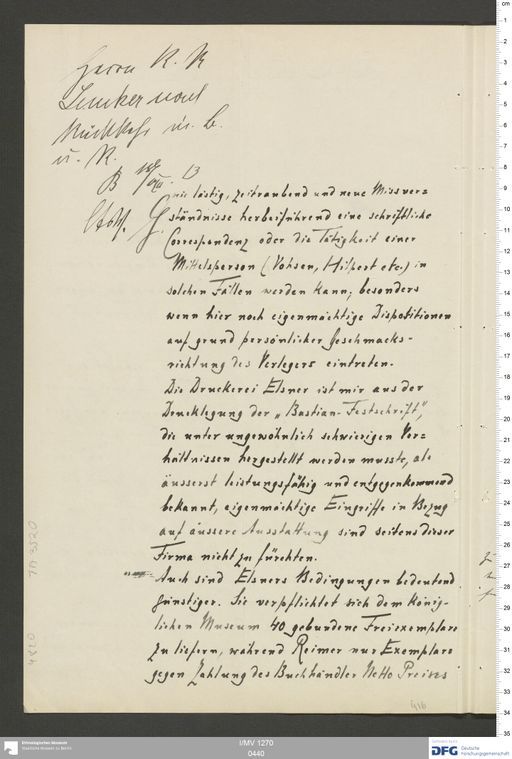 Herrn K. K
nach
Rückkehr m. B.
u. R.
B
13
wie lästig, zeitraubend und neue Missver=
ständnisse herbeiführend eine schriftliche
Correspondenz oder die Tätigkeit einer
Mittelsperson (Vohsen, Hilpert etc.) in
solchen Fällen werden kann; besonders
wenn hier noch eigenmächtige Dispotitionen
auf grund persönlicher Geschmacks-
richtung des Verlegers eintreten.
Die Druckerei Elsner ist mir aus der
Drucklegung der „Bastian-Festschrift",
die unter ungewöhnlich schwierigen Ver=
hältnissen hergestellt werden musste, als
äusserst leistungsfähig und entgegenkommend
bekannt, eigenmächtige Eingriffe in Bezug
auf äussere Ausstattung sind seitens dieser
Firma nicht zu fürchten.
Auch sind Elsners Bedingungen bedeutend
günstiger. Sie verpflichtet sich dem König-
lichen Museum 40 gebundene Freiexemplare
zu liefern, während Reimer nur Exemplare
gegen Zahlung des Buchhändler Netto Preises
416
Ethnologisches Museum
Staatliche Museen zu Berlin
I/MV 1270
0440
DFG Deutsche
Forschungsgemeinschaft
cm
1
2
3
4
5
6
7
8
9
10
11
12
13
14
15
16
17
18
19
20
21
22
23
24
25
26
27
28
29
30
31
32
33
34
35